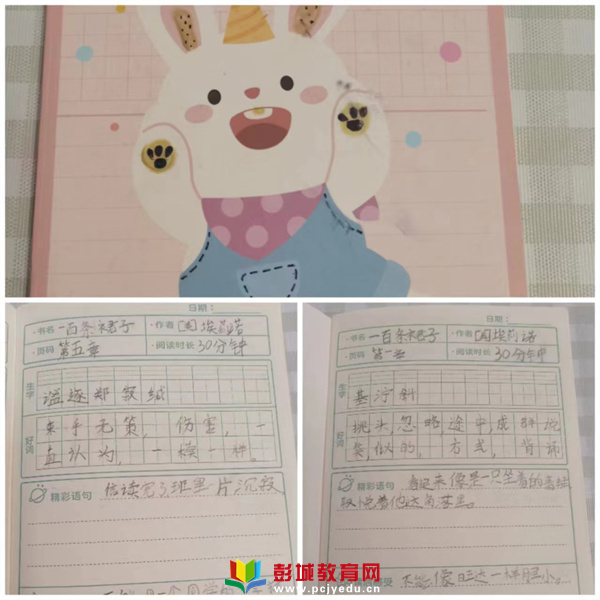 日期：
·书名 一百条裙子 ·作者 [国]埃莉诺
·页码 第五章 ·阅读时长 30分钟
生字
溢逐郑寂缄
好词
束手无策，伤害，一
直认为，一模一样。
精彩语句 信读完了班里一片沉寂
日期：
·书名 一百条裙子 ·作者 [国]埃莉诺
·页码 第一章 ·阅读时长 30分钟
生字
基泞斜
好词
挑头忽略，途中，成群结
似的，方式，背诵
精彩语句 看起来像是一只坐着的
不能像 一样胆小。
彭城教育网
www.pcjyedu.cn